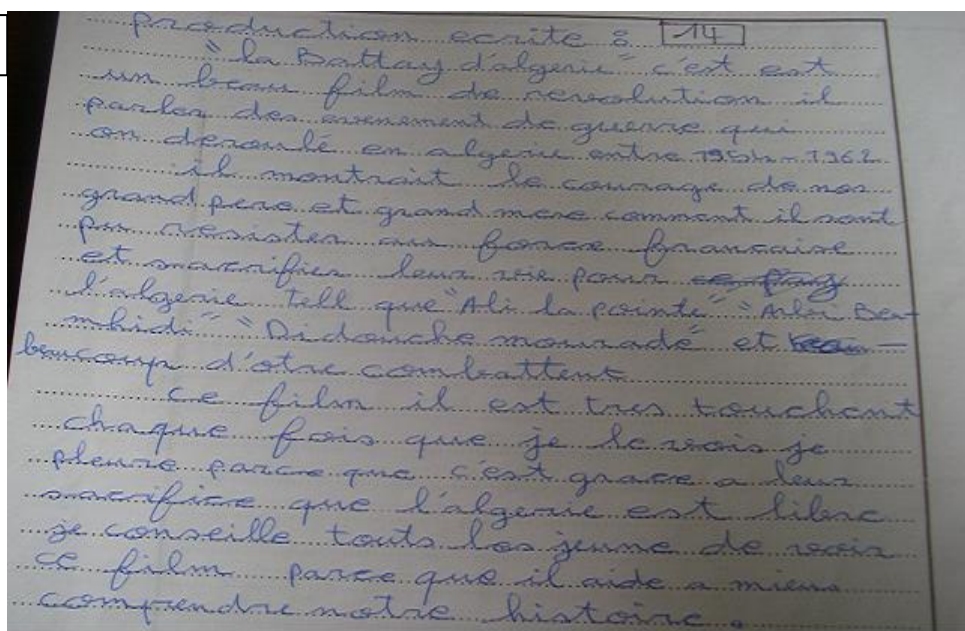 production ecrite : 14
"la Battay d'algerie" c'est est
un beau film de revolution il
parler des evenement de guerre qui
on deroulé en algerie entre 1954 - 1962
il montrait le courage de nos
grand pere et grand mere comment il sont
pu resister au force francaise
et sacrifier leur vie pour
l'algerie tell que "Ali la pointe" "Arbi Ben
mhidi" "Didouche mourade" et
beaucoup d'otre combattent
ce film il est tres touchent
chaque fois que je le vois je
pleure parce que c'est grace a leur
sacrifice que l'algerie est libre
je conseille touts les jeune de voir
ce film parce que il aide a mieux
comprendre notre histoire.